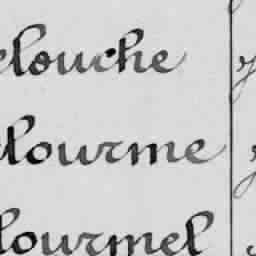 elouche
lourme
lourmel